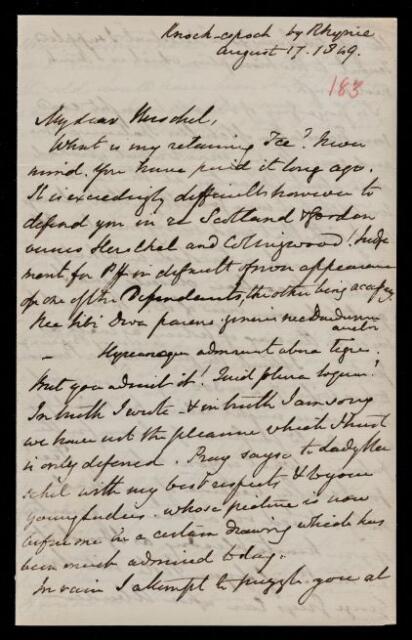 Knock-espock by Rhynie
August 17. 1849.
183
My dear Herschel,
What is my retaining Fee? Never
mind. You have paid it long ago.
It is exceedingly difficult however to
defend you in re Scotland & Gordon
versus Herschel and Collingwood! Judge
ment for Pff in default of appearance
of one of the Dependents, the other being
Nec tibi Diva parens generis nec Dardanus
auctor
– Hyrcanaeque admorunt ubera tigres.
But you admit it! Quid plura loquar!
In truth I wrote & in truth I am sorry
we have not the pleasure which I trust
is only deferred. Pray say so to Lady Her
schel with my best respects & to your
young Ladies whose picture is now
before me in a certain drawing which has
been much admired today.
In vain I attempt to puzzle you at